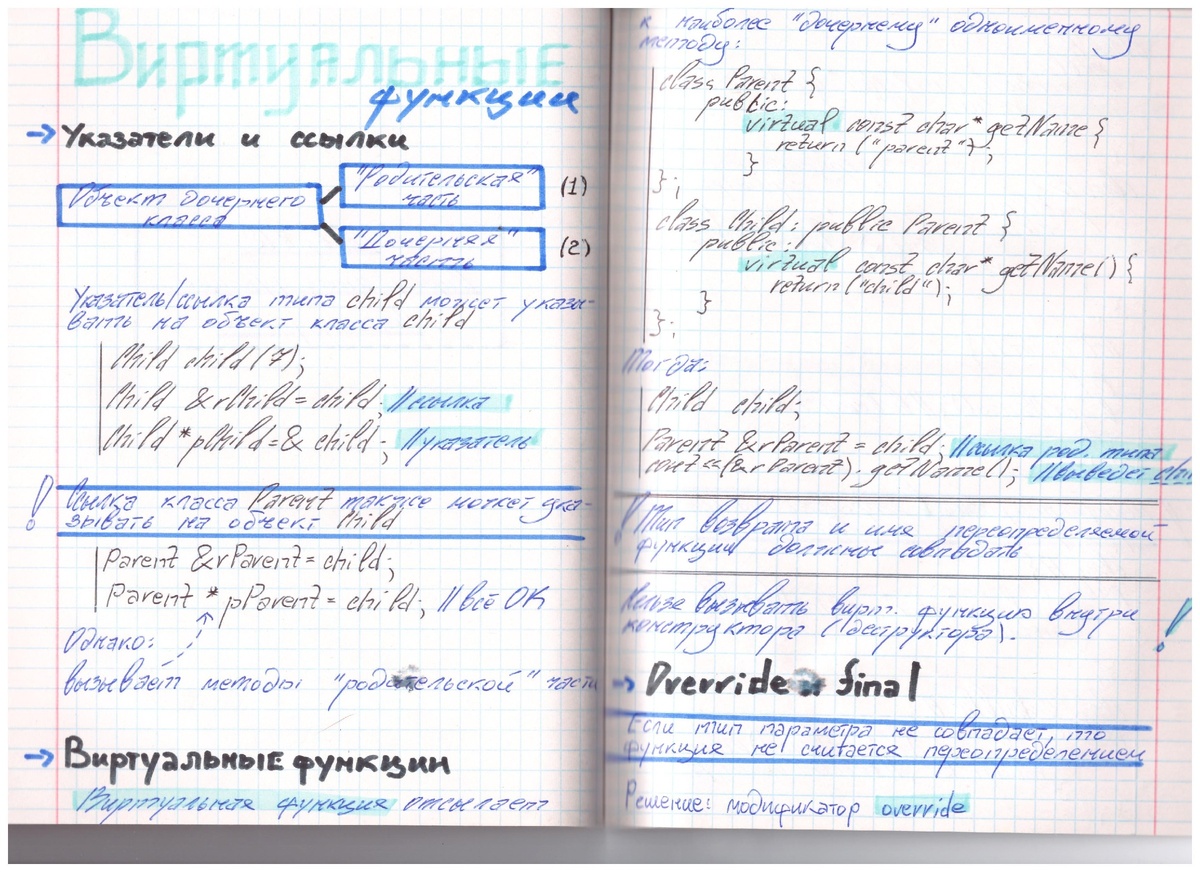 Виртуальные
функции
→ Указатели и ссылки
Объект дочернего
класса
"Родительская"
часть
(1)
"Дочерняя"
часть
(2)
Указатель/ссылка типа child может указы-
вать на объект класса child
Child child(7);
Child &rChild = child; //ссылка
Child *pChild = & child; //указатель
! Ссылка класса Parent также может ука-
зывать на объект Child
Parent &rParent = child;
Parent * pParent = child; //всё ОК
Однако:
вызывает методы "родительской" части
→ Виртуальные функции
Виртуальная функция отсылает
к наиболее "дочернему" одноименному
методу:
class Parent {
public:
virtual const char* getName {
return ("parent");
}
};
class Child: public Parent {
public:
virtual const char* getName() {
return ("child");
}
};
Тогда:
Child child;
Parent &rParent = child; //ссылка род. типа
cout << (&rParent). getName(); //выведет
! Тип возврата и имя переопределяемой
функции должны совпадать
Нельзя вызывать вирт. функцию внутри
конструктора (деструктора). !
→ Override и final
Если тип параметра не совпадает, то
функция не считается переопределением
Решение: модификатор override